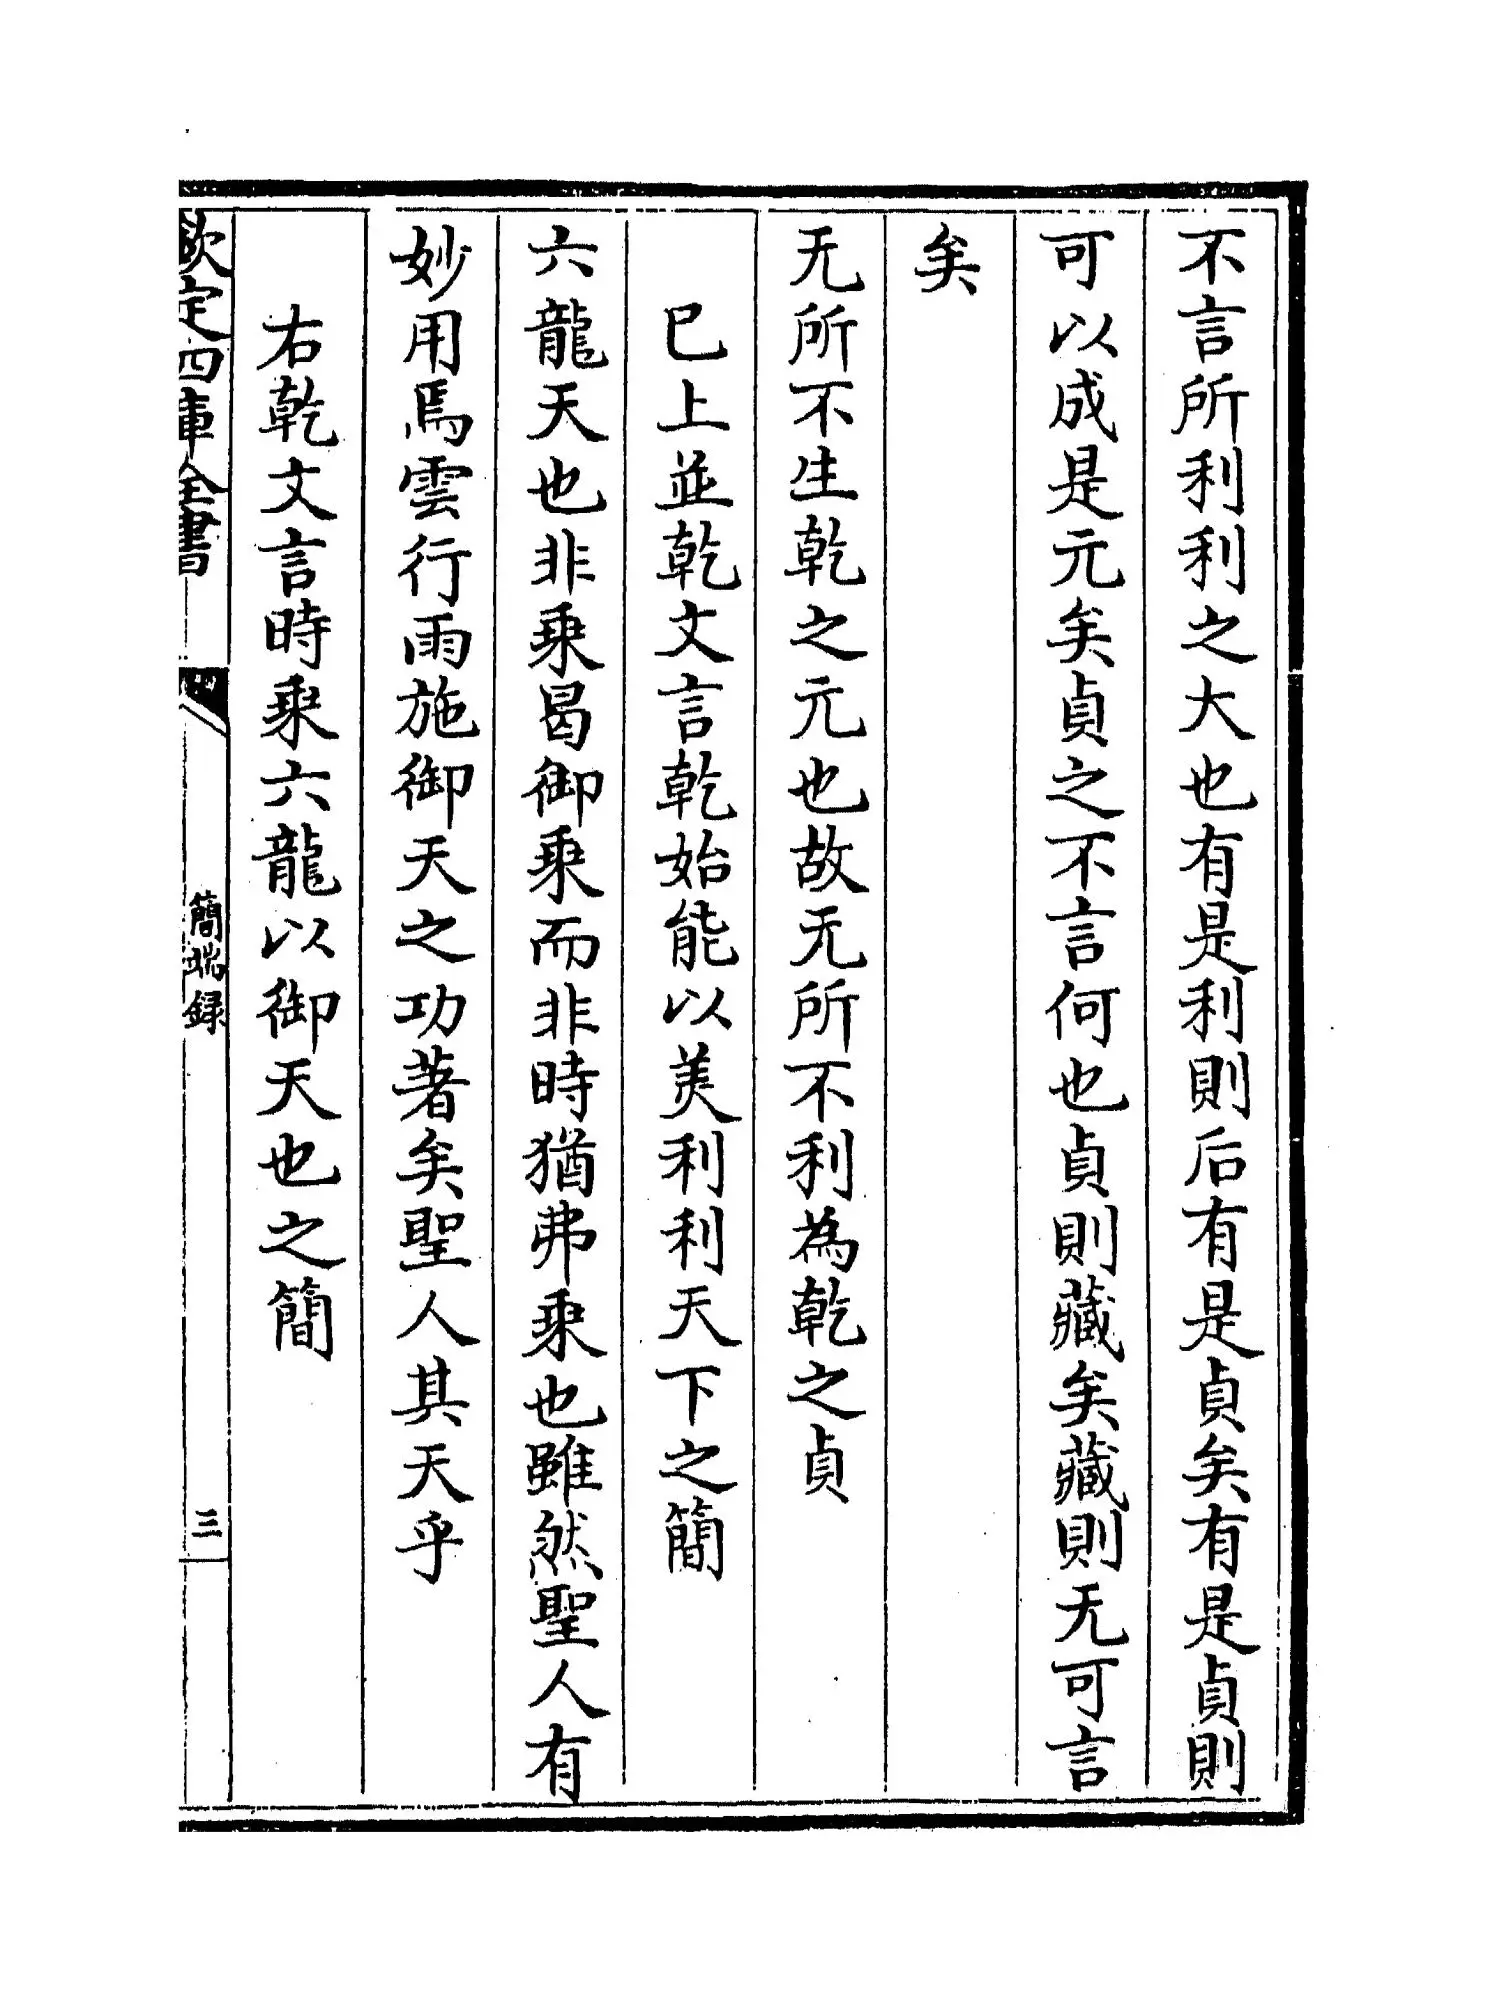 不言所利利之大也有是利則后有是貞矣有是貞則
可以成是元矣貞之不言何也貞則藏矣藏則无可言
矣
无所不生乾之元也故无所不利為乾之貞
已上並乾文言乾始能以美利利天下之簡
六龍天也非乘曷御乘而非時猶弗乘也雖然聖人有
妙用焉雲行雨施御天之功著矣聖人其天乎
右乾文言時乘六龍以御天也之簡
欽定四庫全書
簡端録
三